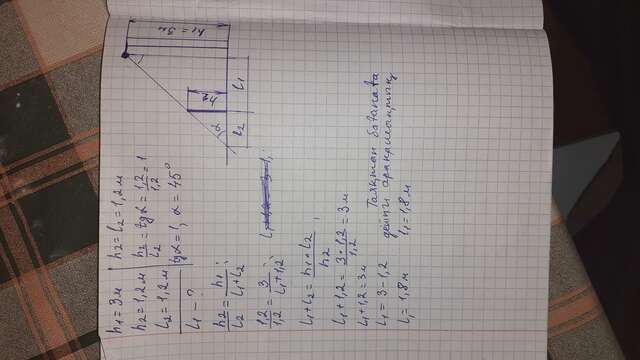 h₁=3м h₂=l₂=1,2м
h₂=1,2м h₂/l₂=tgα=1,2/1,2=1
l₂=1,2м tgα=1, α=45°
l₁-?
h₂/l₂=h₁/(l₁+l₂);
1,2/1,2=3/(l₁+1,2);
l₁+l₂=h₁·l₂/h₂;
l₁+1,2=3·1,2/1,2=3м
l₁+1,2=3м
l₁=3-1,2
l₁=1,8м
Таяқтан бағанаға
дейінгі арақашықтық
l₁=1,8м
h₁=3м
h₂
α
l₂
l₁